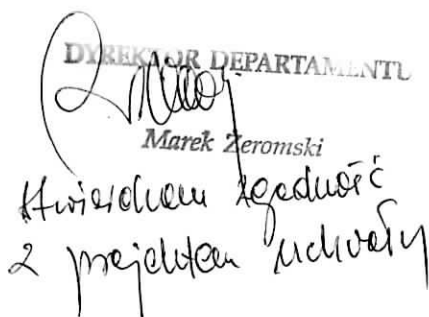 DYREKTOR DEPARTAMENTU
Marek Żeromski
Stwierdzam zgodność
z projektem uchwały